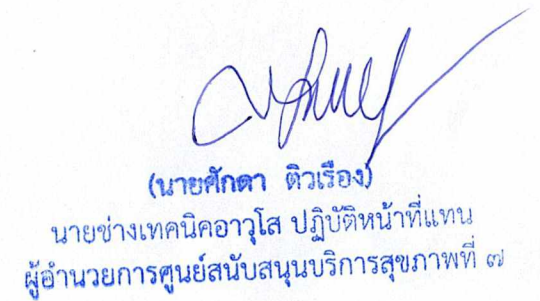 (นายศักดา ติวเรือง)
นายช่างเทคนิคอาวุโส ปฏิบัติหน้าที่แทน
ผู้อำนวยการศูนย์สนับสนุนบริการสุขภาพที่ ๗